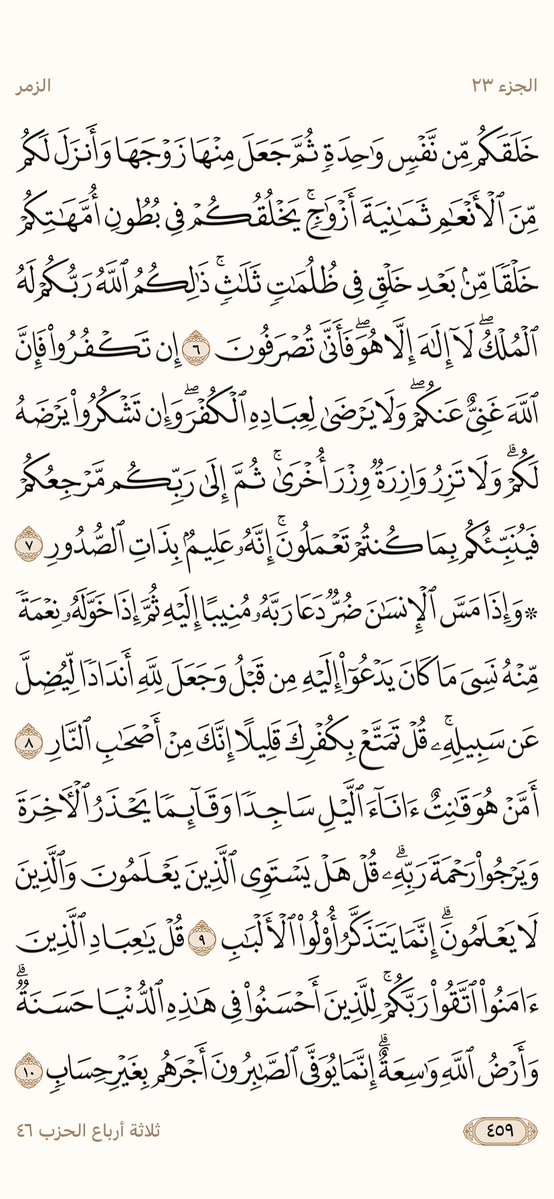 الجزء ٢٣
الزمر
خَلَقَكُم مِّن نَّفۡسٖ وَٰحِدَةٖ ثُمَّ جَعَلَ مِنۡهَا زَوۡجَهَا وَأَنزَلَ لَكُم
مِّنَ ٱلۡأَنۡعَٰمِ ثَمَٰنِيَةَ أَزۡوَٰجٖۚ يَخۡلُقُكُمۡ فِي بُطُونِ أُمَّهَٰتِكُمۡ
خَلۡقٗا مِّنۢ بَعۡدِ خَلۡقٖ فِي ظُلُمَٰتٖ ثَلَٰثٖۚ ذَٰلِكُمُ ٱللَّهُ رَبُّكُمۡ لَهُ
ٱلۡمُلۡكُۖ لَآ إِلَٰهَ إِلَّا هُوَۖ فَأَنَّىٰ تُصۡرَفُونَ ٦ إِن تَكۡفُرُواْ فَإِنَّ
ٱللَّهَ غَنِيٌّ عَنكُمۡۖ وَلَا يَرۡضَىٰ لِعِبَادِهِ ٱلۡكُفۡرَۖ وَإِن تَشۡكُرُواْ يَرۡضَهُ
لَكُمۡۗ وَلَا تَزِرُ وَازِرَةٞ وِزۡرَ أُخۡرَىٰۚ ثُمَّ إِلَىٰ رَبِّكُم مَّرۡجِعُكُمۡ
فَيُنَبِّئُكُم بِمَا كُنتُمۡ تَعۡمَلُونَۚ إِنَّهُۥ عَلِيمُۢ بِذَاتِ ٱلصُّدُورِ ٧
۞ وَإِذَا مَسَّ ٱلۡإِنسَٰنَ ضُرّٞ دَعَا رَبَّهُۥ مُنِيبًا إِلَيۡهِ ثُمَّ إِذَا خَوَّلَهُۥ نِعۡمَةٗ
مِّنۡهُ نَسِيَ مَا كَانَ يَدۡعُوٓاْ إِلَيۡهِ مِن قَبۡلُ وَجَعَلَ لِلَّهِ أَندَادٗا لِّيُضِلَّ
عَن سَبِيلِهِۦۚ قُلۡ تَمَتَّعۡ بِكُفۡرِكَ قَلِيلًا إِنَّكَ مِنۡ أَصۡحَٰبِ ٱلنَّارِ ٨
أَمَّنۡ هُوَ قَٰنِتٌ ءَانَآءَ ٱلَّيۡلِ سَاجِدٗا وَقَآئِمٗا يَحۡذَرُ ٱلۡأٓخِرَةَ
وَيَرۡجُواْ رَحۡمَةَ رَبِّهِۦۗ قُلۡ هَلۡ يَسۡتَوِي ٱلَّذِينَ يَعۡلَمُونَ وَٱلَّذِينَ
لَا يَعۡلَمُونَۗ إِنَّمَا يَتَذَكَّرُ أُوْلُواْ ٱلۡأَلۡبَٰبِ ٩ قُلۡ يَٰعِبَادِ ٱلَّذِينَ
ءَامَنُواْ ٱتَّقُواْ رَبَّكُمۡۚ لِلَّذِينَ أَحۡسَنُواْ فِي هَٰذِهِ ٱلدُّنۡيَا حَسَنَةٞۗ
وَأَرۡضُ ٱللَّهِ وَٰسِعَةٌۗ إِنَّمَا يُوَفَّى ٱلصَّٰبِرُونَ أَجۡرَهُم بِغَيۡرِ حِسَابٖ ١٠
٤٥٩
ثلاثة أرباع الحزب ٤٦